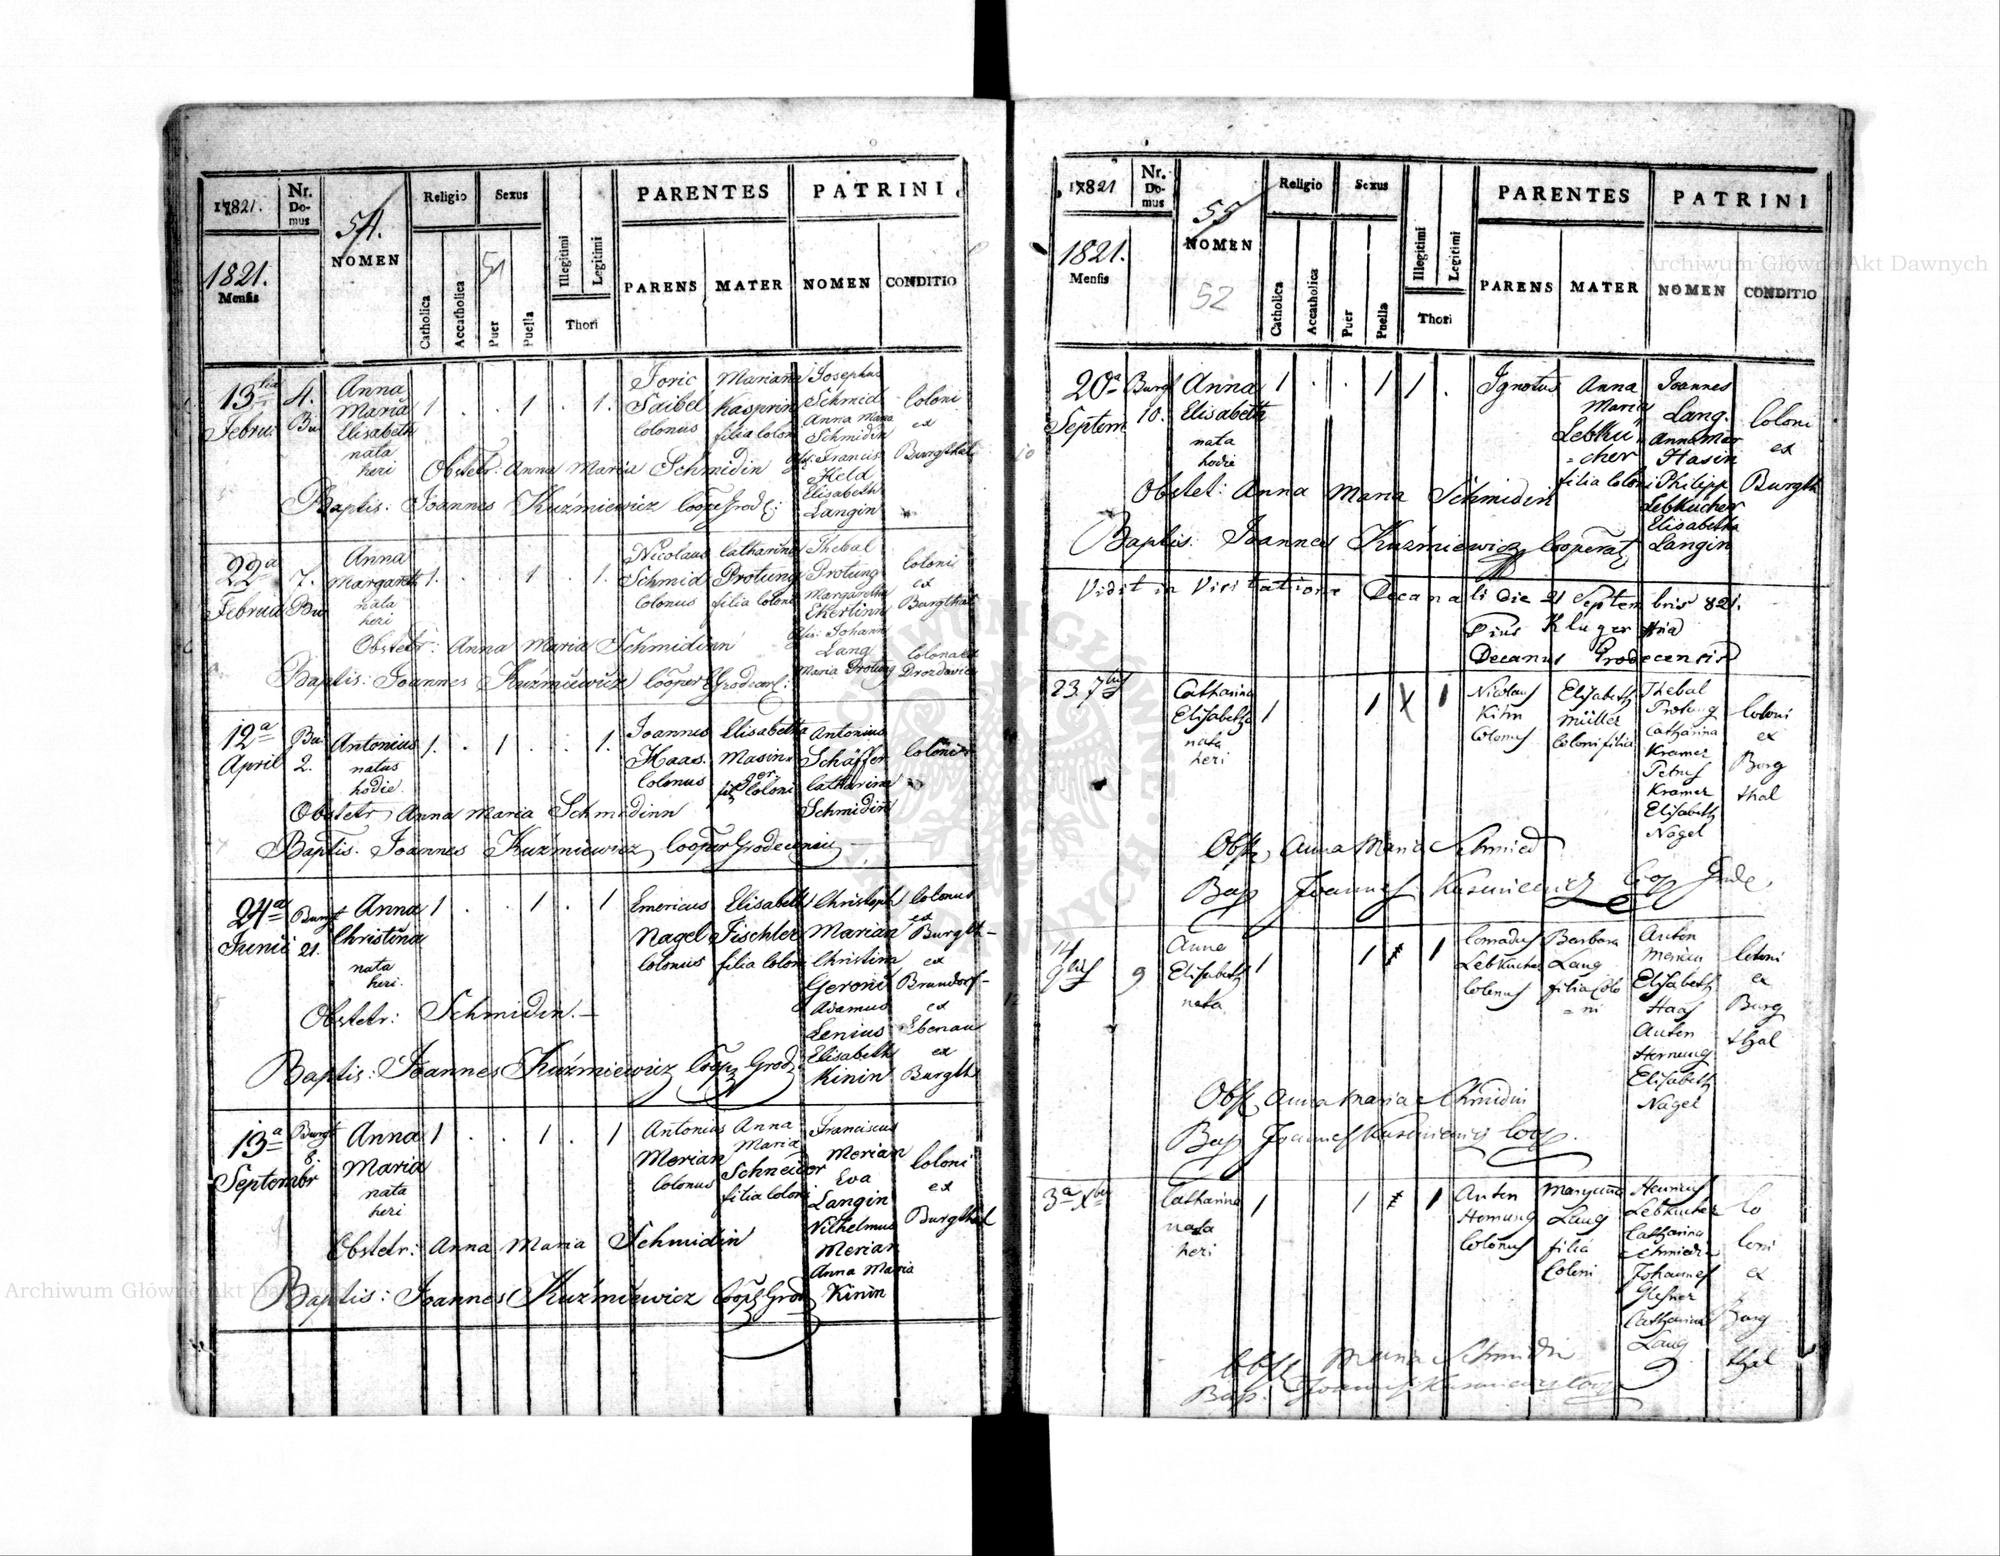 17821.
Nr. Domus
54.
NOMEN
Religio
Sexus
PARENTES
PATRINI
1821.
Mensis
Catholica
Accatholica
51
Puer
Puella
Illegitimi
Legitimi
Thori
PARENS
MATER
NOMEN
CONDITIO
13tia Februa:
4. Bu
Anna
Maria
Elisabeth
nata
heri
1 . . 1 . 1.
Joric
Saibel
Colonus
Mariana
Kasprin
filia Coloni
Josephus
Schmid
Anna Maria
Schmidin
Francis
Held
Elisabeth
Langin
Coloni
ex
Burgthal
Obstetr: Anna Maria Schmidin
Baptis: Joannes Kuźmiewicz Cooper Grod:
22a Februa
7. Bu
Anna
Margareth
nata
heri
1. . . 1 . 1.
Nicolaus
Schmid
Colonus
Catharina
Protung
filia Coloni
Thebal
Protung
Margaretha
Ekertinn
Johann
Lang
Maria Protung
Colonii
ex
Burgthal
Colona ex
Drozdowice
Obstetr: Anna Maria Schmidinn
Baptis: Joannes Kuźmiewicz Cooper Grodecen:
12a April
Bu 2.
Antonius
natus
hodie
1. . 1 . . 1.
Joannes
Haas.
Colonus
Elisabetha
Masinger
fil Coloni
Antonius
Schäffer
Catharina
Schmidin
Coloni
Obstetr Anna Maria Schmidinn
Baptis. Joannes Kuźmiewicz Cooper Grodecensis
24a Junii
Burgt 21.
Anna
Christina
nata
heri.
1 . . 1 . 1
Emericus
Nagel
Colonus
Elisabeth
Fischler
filia Coloni
Christoph
Marian
Christina
Geroni
Adamus
Lenius
Elisabeth
Kinin
Colonus
ex
Burgth-
ex
Brundorf-
ex
Ebenau
ex
Burgth
Obstetr: Schmidin.
Baptis: Joannes Kuźmiewicz Coop Grod
13a Septembr
Burgt 8.
Anna
Maria
nata
heri
1 . . 1 . 1
Antonius
Merian
Colonus
Anna
Maria
Schneider
filia Coloni
Franciscus
Merian
Eva
Langin
Vilhelmus
Merian
Anna Maria
Kinin
Coloni
ex
Burgthal
Obstetr: Anna Maria Schmidin
Baptis: Joannes Kuźmiewicz Coop Grod
17821
Nr. Domus
55
NOMEN
52
Religio
Sexus
PARENTES
PATRINI
1821.
Mensis
Catholica
Accatholica
Puer
Puella
Illegitimi
Legitimi
Thori
PARENS
MATER
NOMEN
CONDITIO
20a Septem
Burgt 10.
Anna
Elisabeth
nata
hodie
1 . . 1 1 .
Ignotus
Anna
Maria
Lebku
=cher
filia Coloni
Joannes
Lang.
Anna Mar
Hasin
Philipp
Lebkucher
Elisabetha
Langin
Coloni
ex
Burgth
Obstet: Anna Maria Schmidin
Baptis: Joannes Kuźmiewicz Cooperat
Vidit in Visitatione Decanali die 21 Septembris 821.
Pius Kluger
Decanus Grodecensis
23. 7bris
Catharina
Elisabeth
nata
heri
1 1 1
Nicolaus
Kihn
Colonus
Elisabeth
Müller
Coloni filia
Thebal
Protung
Catharina
Kramer
Petrus
Kramer
Elisabeth
Nagel
Coloni
ex
Burg
thal
Obst, Anna Maria Schmied
Bap Joannes Kusmiewicz Coop Grode,
14 9
Anna
Elisabeth
nata
1 1 1
Conradus
Lebkucher
Colonus
Barbara
Lang
filia Colo
=ni
Anton
Merian
Elisabeth
Haas
Anton
Hornung
Elisabeth
Nagel
Coloni
ex
Burg
thal
Obst, Anna Maria Schmidin
Bap Joannes Kusmiewicz Coop.
3a Xbris
Catharina
nata
heri
1 1 1
Anton
Hornung
Colonus
Maryanna
Lang
filia
Coloni
Henricus
Lebkucher
Catharina
Schmiedin
Johannes
Glesner
Catharina
Lang
Co
loni
ex
Burg
thal
Obst Maria Schmidin
Bap. Joannes Kusmiewicz Coop
Archiwum Główne Akt Dawnych
Archiwum Główne Akt Dawnych